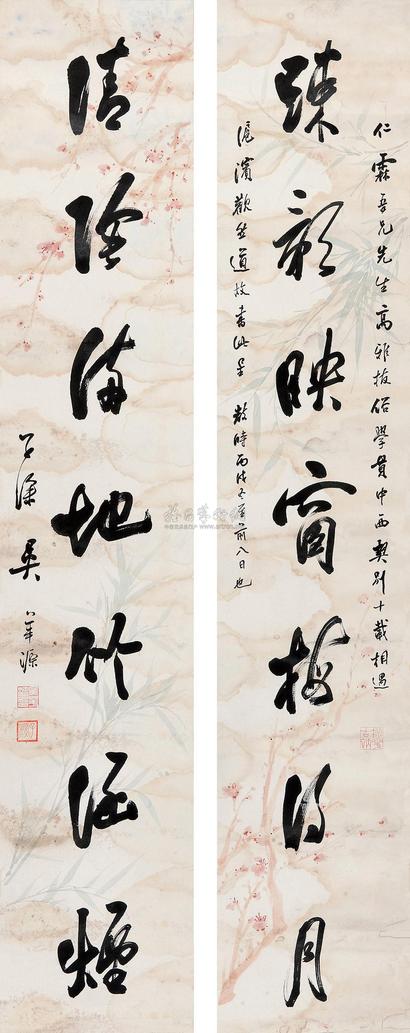 仁霖吾兄先生高雅拔俗學貫中西契別十載相遇
疎影映窗梅得月
滬濱歡然道故書此呈教時丙戌冬至前八日也
清陰滿地竹涵煙
子深吳華源